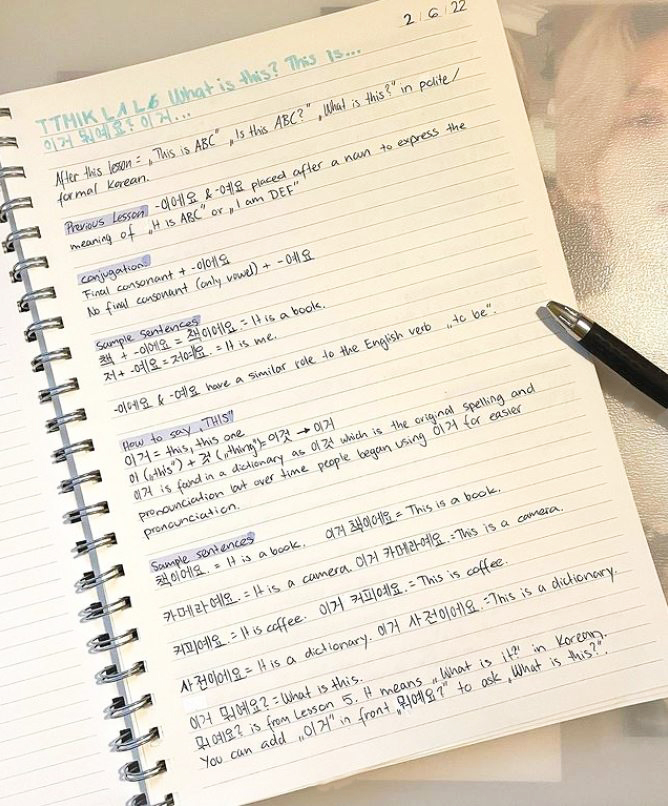 2/6/22
TTMIK L1 L6 What is this? This is...
이거 뭐예요? 이거...
After this lesson = „This is ABC" „Is this ABC?" „What is this?" in polite/
formal Korean.
Previous Lesson -이에요 & -예요 placed after a noun to express the
meaning of „It is ABC" or „I am DEF"
conjugation:
Final consonant + -이에요
No final consonant (only vowel) + -예요
Sample sentences
책 + -이에요 = 책이에요. = It is a book.
저 + -예요 = 저예요. = It is me.
-이에요 & -예요 have a similar role to the English verb „to be".
How to say „THIS"
이거 = this, this one
이 („this") + 것 („thing") = 이것 → 이거
이거 is found in a dictionary as 이것 which is the original spelling and
pronounciation but over time people began using 이거 for easier
pronounciation.
Sample sentences
책이에요. = It is a book. 이거 책이에요 = This is a book.
카메라예요. = It is a camera. 이거 카메라예요. = This is a camera.
커피예요. = It is coffee. 이거 커피예요. = This is coffee.
사전이에요 = It is a dictionary. 이거 사전이에요. = This is a dictionary.
이거 뭐예요? = What is this.
뭐예요? is from Lesson 5. It means „What is it?" in Korean.
You can add „이거" in front „뭐예요?" to ask „What is this?".